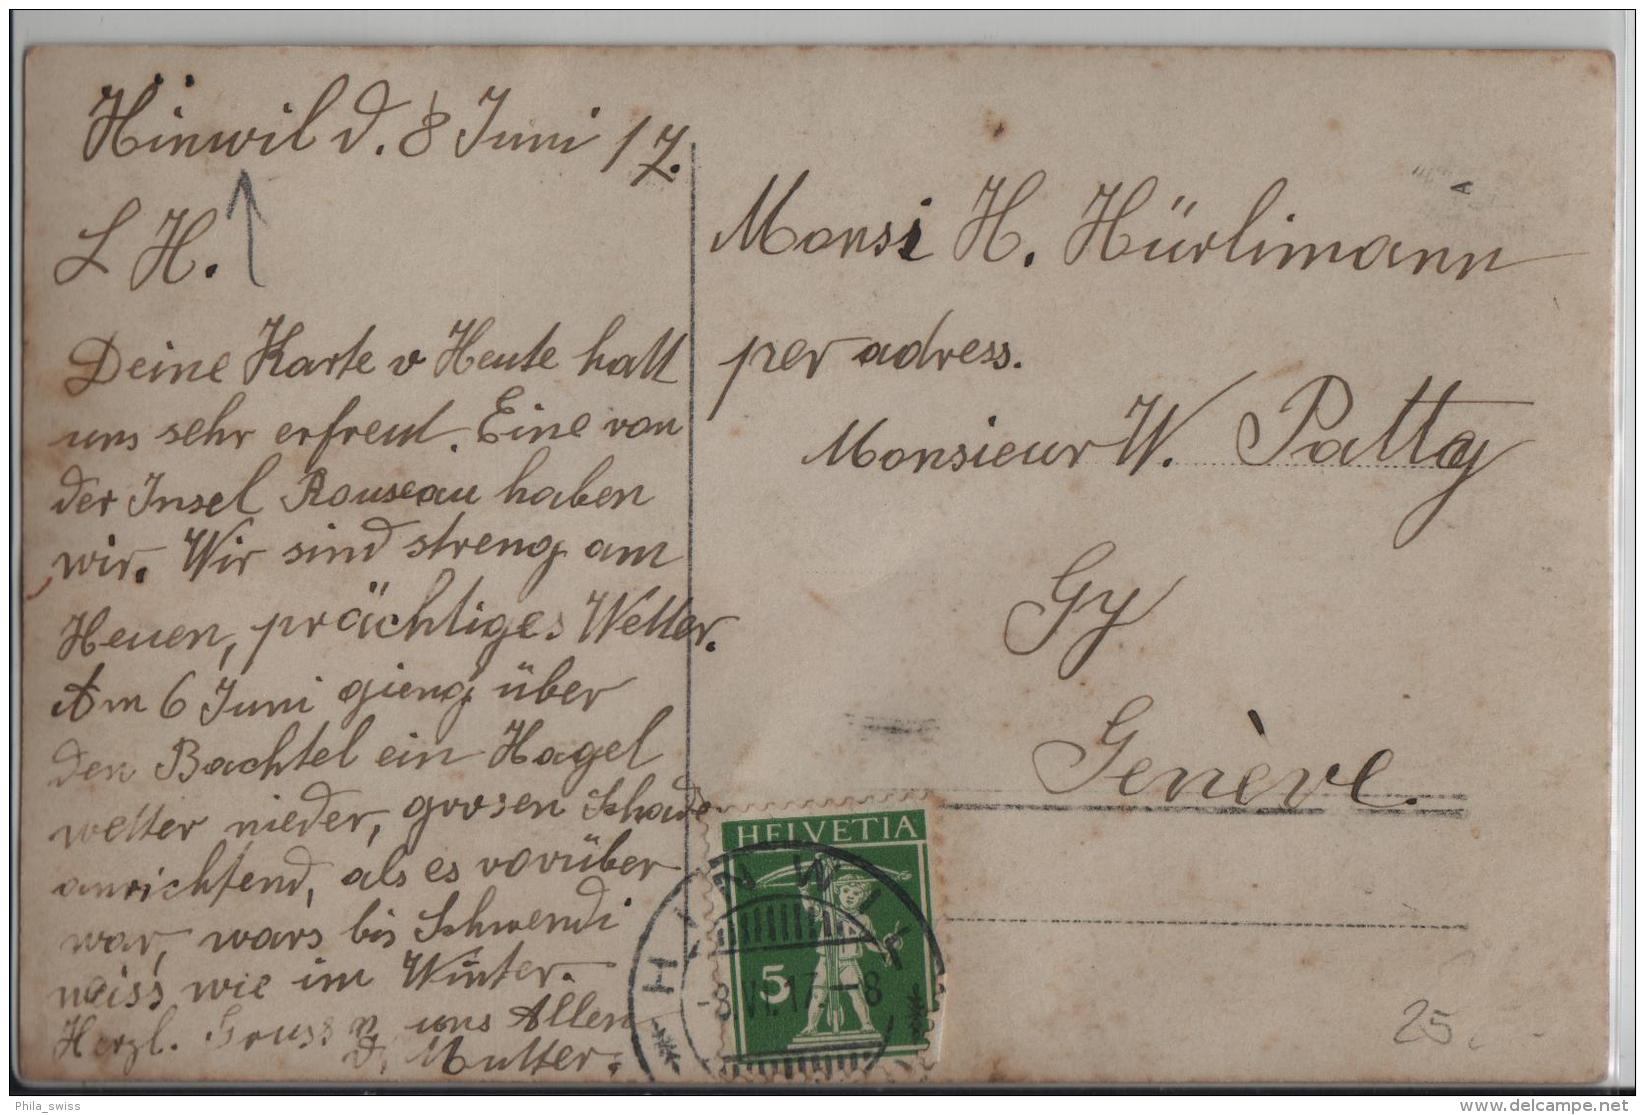 Hinwil d. 8 Juni 17.
L H.
Deine Karte v Heute hatt
uns sehr erfreut. Eine von
der Insel Rouseau haben
wir. Wir sind streng am
Heuen, prächtiges Wetter.
Am 6 Juni gieng über
den Bachtel ein Hagel
wetter nieder, grosen Schade
anrichtend, als es vorüber
war, wars bis Schwendi
weiss wie im Winter.
Herzl. Gruss v uns Allen
d, Mutter.
Monsi H. Hürlimann
per adress.
Monsieur W. Patty
Gy
Genève.
HELVETIA
5
HINWIL
-8.VI.17.-8
25.-
Phila_swiss
delcampe.net